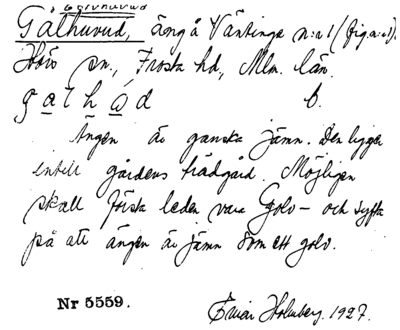 Golvhuvud
Galhuvud, äng å Väntinge n:r 1 (fig. n:o 1).
Hörs sn., Frosta hd., Mlm. län.
galhåd b.
Ängen är ganska jämn. Den ligger
intill gårdens trädgård. Möjligen
skall första leden vara Golv- och syfta
på att ängen är jämn som ett golv.
Nr 5559. Einar Holmberg. 1927.